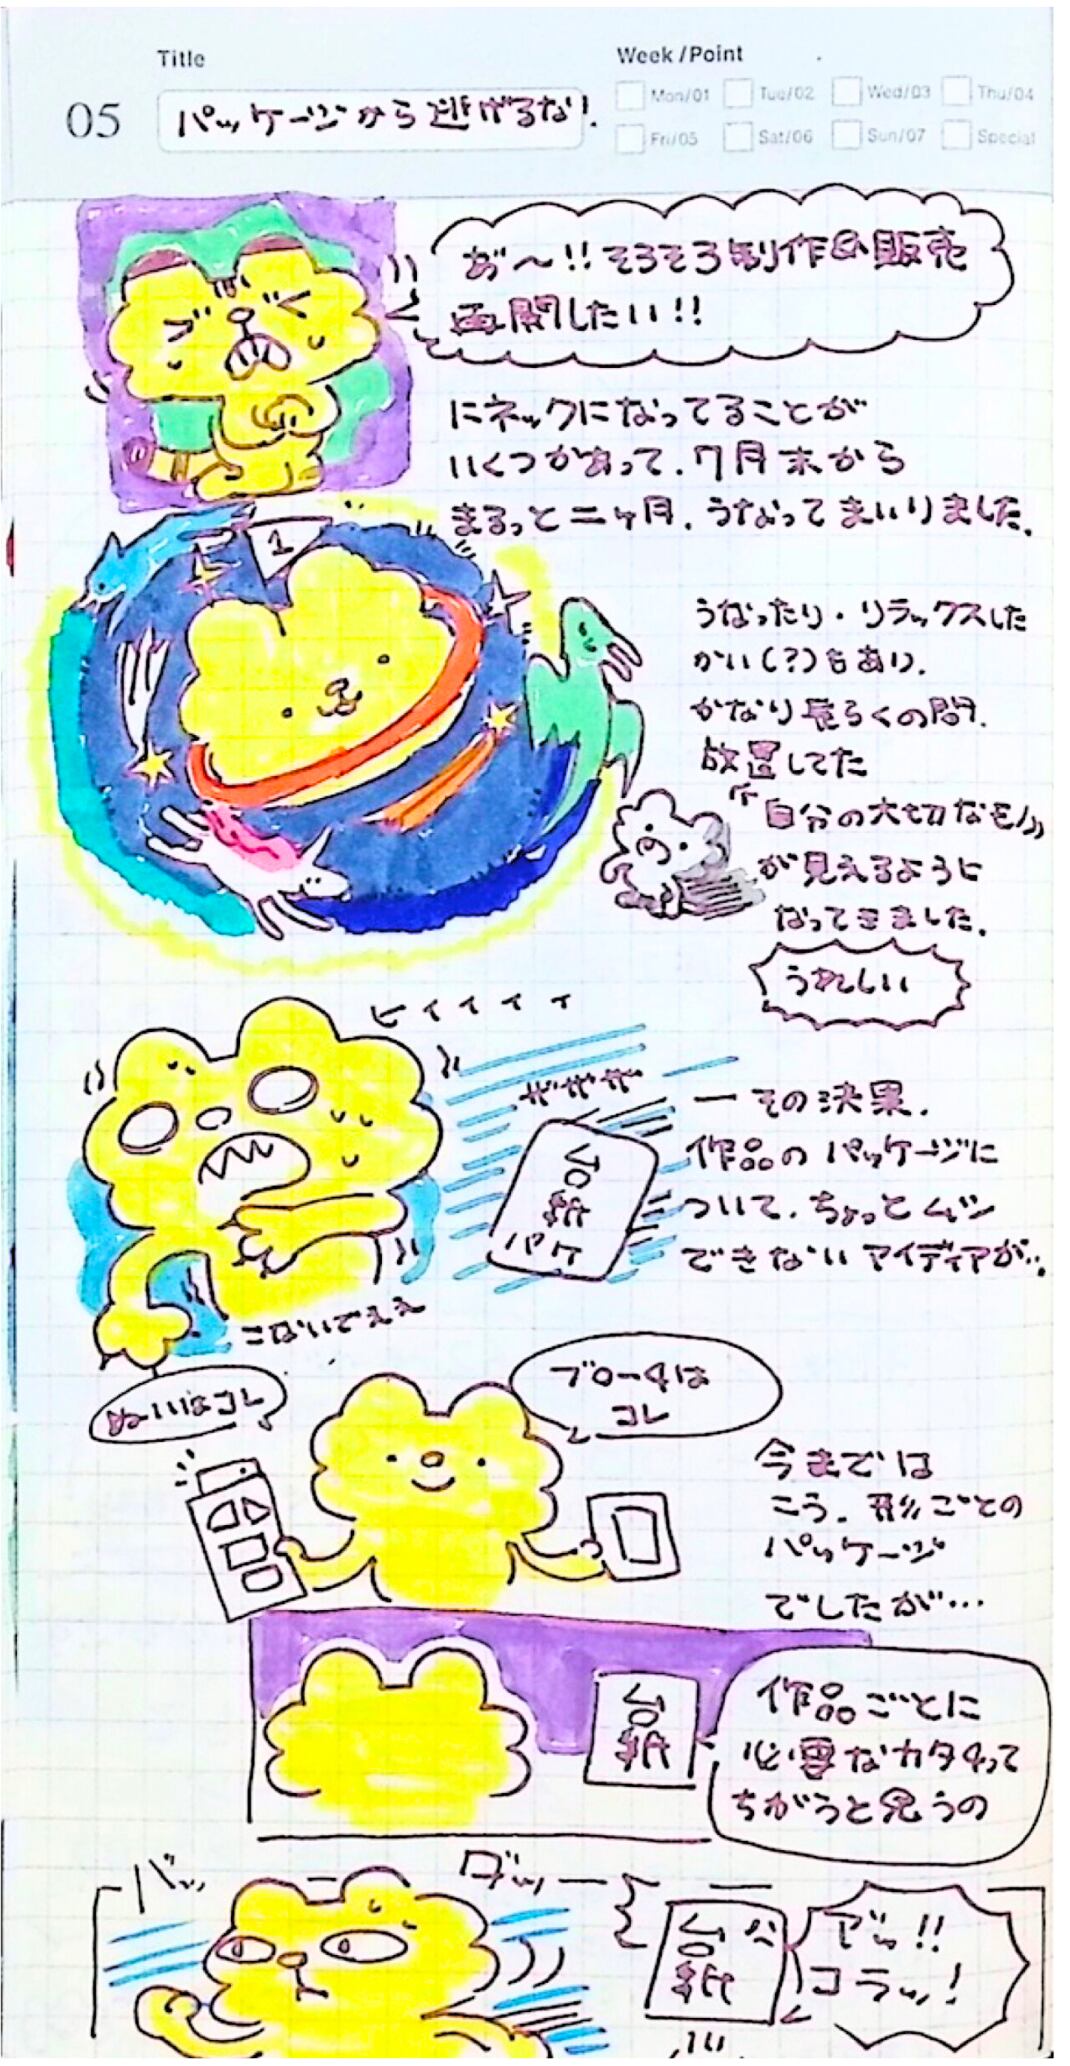 Title
Week/Point
05
パッケージから逃げるな!.
Mon/01
Tue/02
Wed/03
Thu/04
Fri/05
Sat/06
Sun/07
Special
あ゛〜!!そろそろ制作&販売
再開したい!!
にネックになってることが
いくつかあって、7月末から
まるっと二ヶ月、うなってまいりました。
1
うなったり・リラックスした
かい(?)もあり、
かなり長らくの間、
放置してた
"自分の大切なモノ"
が見えるように
なってきました。
うれしい
ヒィィィィ
ザザザザ
台紙
パケ
こないでぇぇ
ーその決果、
作品のパッケージに
ついて、ちょっとムシ
できないアイディアが…
ぬいはコレ
ブローチは
コレ
今までは
こう、形ごとの
パッケージ
でしたが…
台紙
作品ごとに
必要なカタチって
ちがうと思うの
バッ
ダッ
台紙
アッ!!
コラッ!